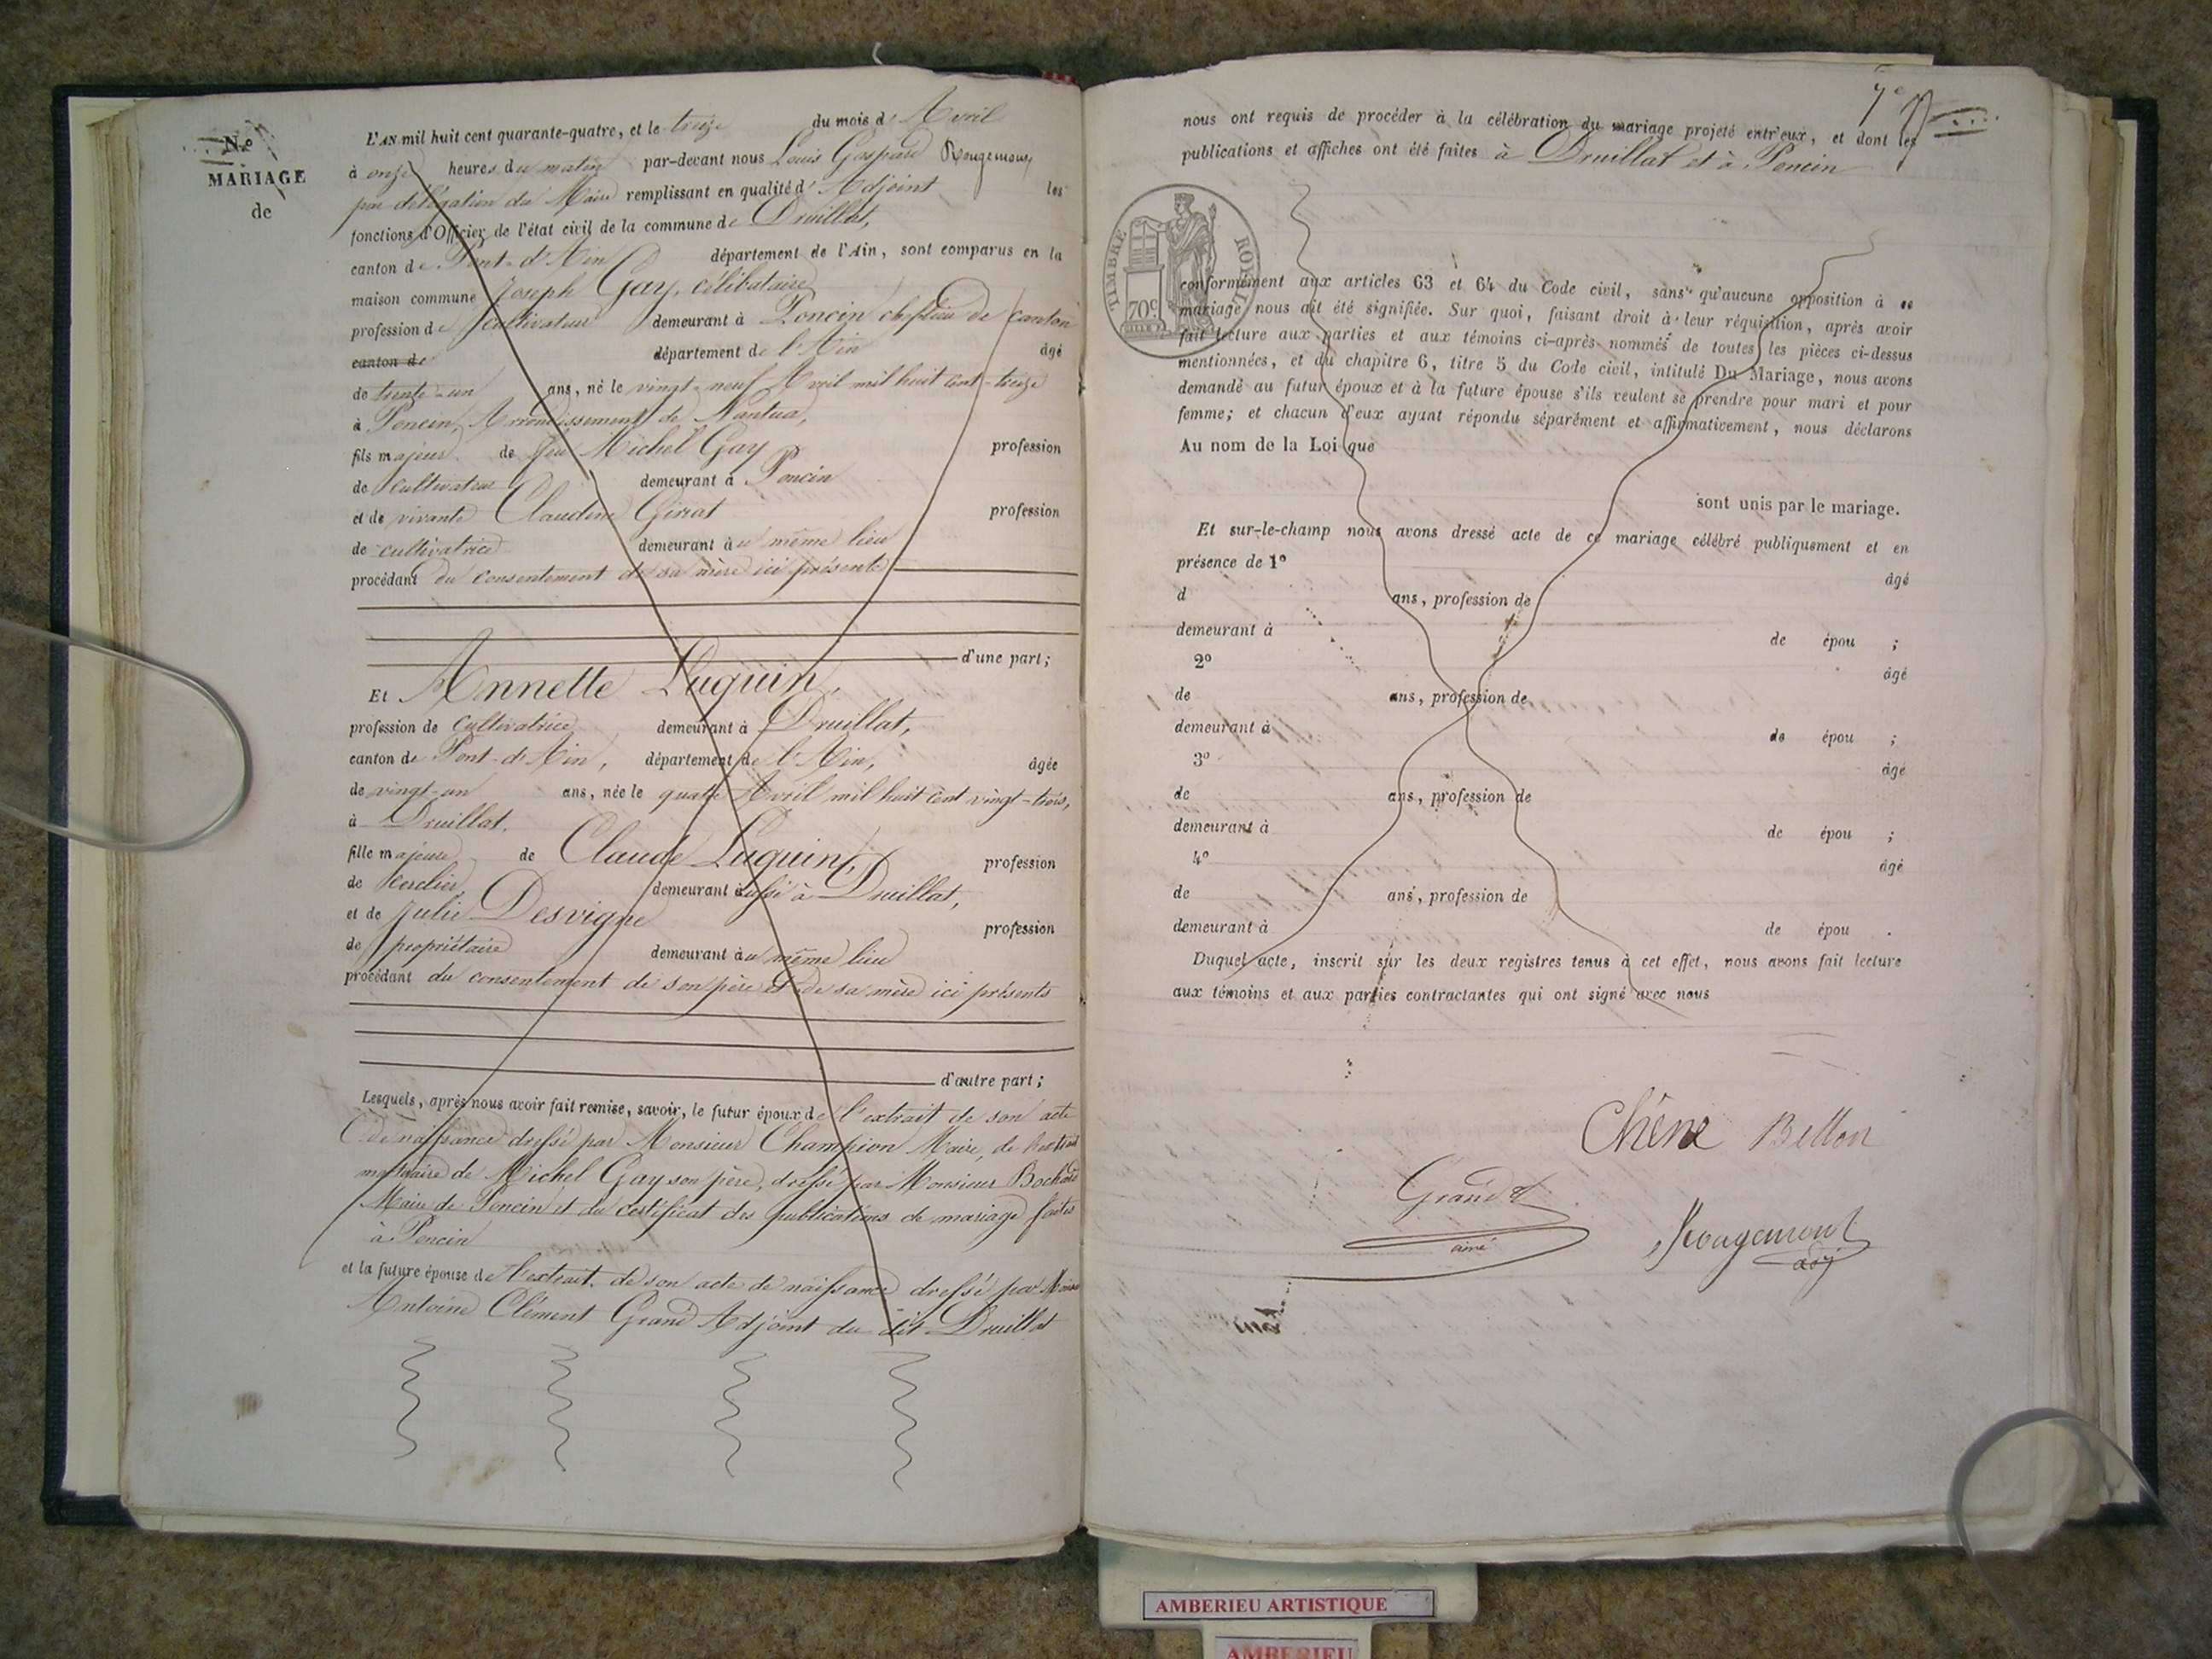 N.o
MARIAGE
de
L'AN mil huit cent quarante-quatre, et le treize du mois d'Avril
à onze heures du matin par-devant nous Louis Gaspard Rougemont
par délégation du Maire remplissant en qualité d'Adjoint les
fonctions d'Officier de l'état civil de la commune de Druillat,
canton de Pont-d'Ain département de l'Ain, sont comparus en la
maison commune Joseph Gay, célibataire
profession de cultivateur demeurant à Poncin chef lieu de canton
canton de département de l'Ain âgé
de trente-un ans, né le vingt-neuf Avril mil huit cent-treize
à Poncin, Arrondissement de Nantua,
fils majeur de feu Michel Gay profession
de cultivateur demeurant à Poncin
et de vivante Claudine Girat profession
de cultivatrice demeurant au même lieu
procédant du consentement de sa mère ici présente
d'une part;
Et Annette Luquin,
profession de cultivatrice demeurant à Druillat,
canton de Pont-d'Ain, département de l'Ain, âgée
de vingt-un ans, née le quatre Avril mil huit cent vingt-trois,
à Druillat.
fille majeure de Claude Luquin, profession
de demeurant aussi à Druillat,
et de Julie Desvigne profession
de propriétaire demeurant au même lieu
procédant du consentement de son père et de sa mère ici présents
d'autre part;
Lesquels, après nous avoir fait remise, savoir, le futur époux de l'extrait de son acte
de naissance dressé par Monsieur Champion Maire, de l'extrait
mortuaire de Michel Gay son père, dressé par Monsieur Bochard
Maire de Poncin et du certificat des publications de mariage faites
à Poncin
et la future épouse de l'extrait de son acte de naissance dressé par
Antoine Clément Grand Adjoint du dit Druillat
nous ont requis de procéder à la célébration du mariage projeté entr'eux, et dont les
publications et affiches ont été faites à Druillat et à Poncin
TIMBRE ROYAL
70c
conformément aux articles 63 et 64 du Code civil, sans qu'aucune opposition à ce
mariage nous ait été signifiée. Sur quoi, faisant droit à leur réquisition, après avoir
fait lecture aux parties et aux témoins ci-après nommés de toutes les pièces ci-dessus
mentionnées, et du chapitre 6, titre 5 du Code civil, intitulé Du Mariage, nous avons
demandé au futur époux et à la future épouse s'ils veulent se prendre pour mari et pour
femme; et chacun d'eux ayant répondu séparément et affirmativement, nous déclarons
Au nom de la Loi que
sont unis par le mariage.
Et sur-le-champ nous avons dressé acte de ce mariage célébré publiquement et en
présence de 1o âgé
d ans, profession de
demeurant à de épou ;
2o âgé
de ans, profession de
demeurant à de épou ;
3o âgé
de ans, profession de
demeurant à de épou ;
4o âgé
de ans, profession de
demeurant à de épou .
Duquel acte, inscrit sur les deux registres tenus à cet effet, nous avons fait lecture
aux témoins et aux parties contractantes qui ont signé avec nous
Chêne Bellon
Grand
aîné
Rougemont
adj
AMBERIEU ARTISTIQUE
AMBERIEU